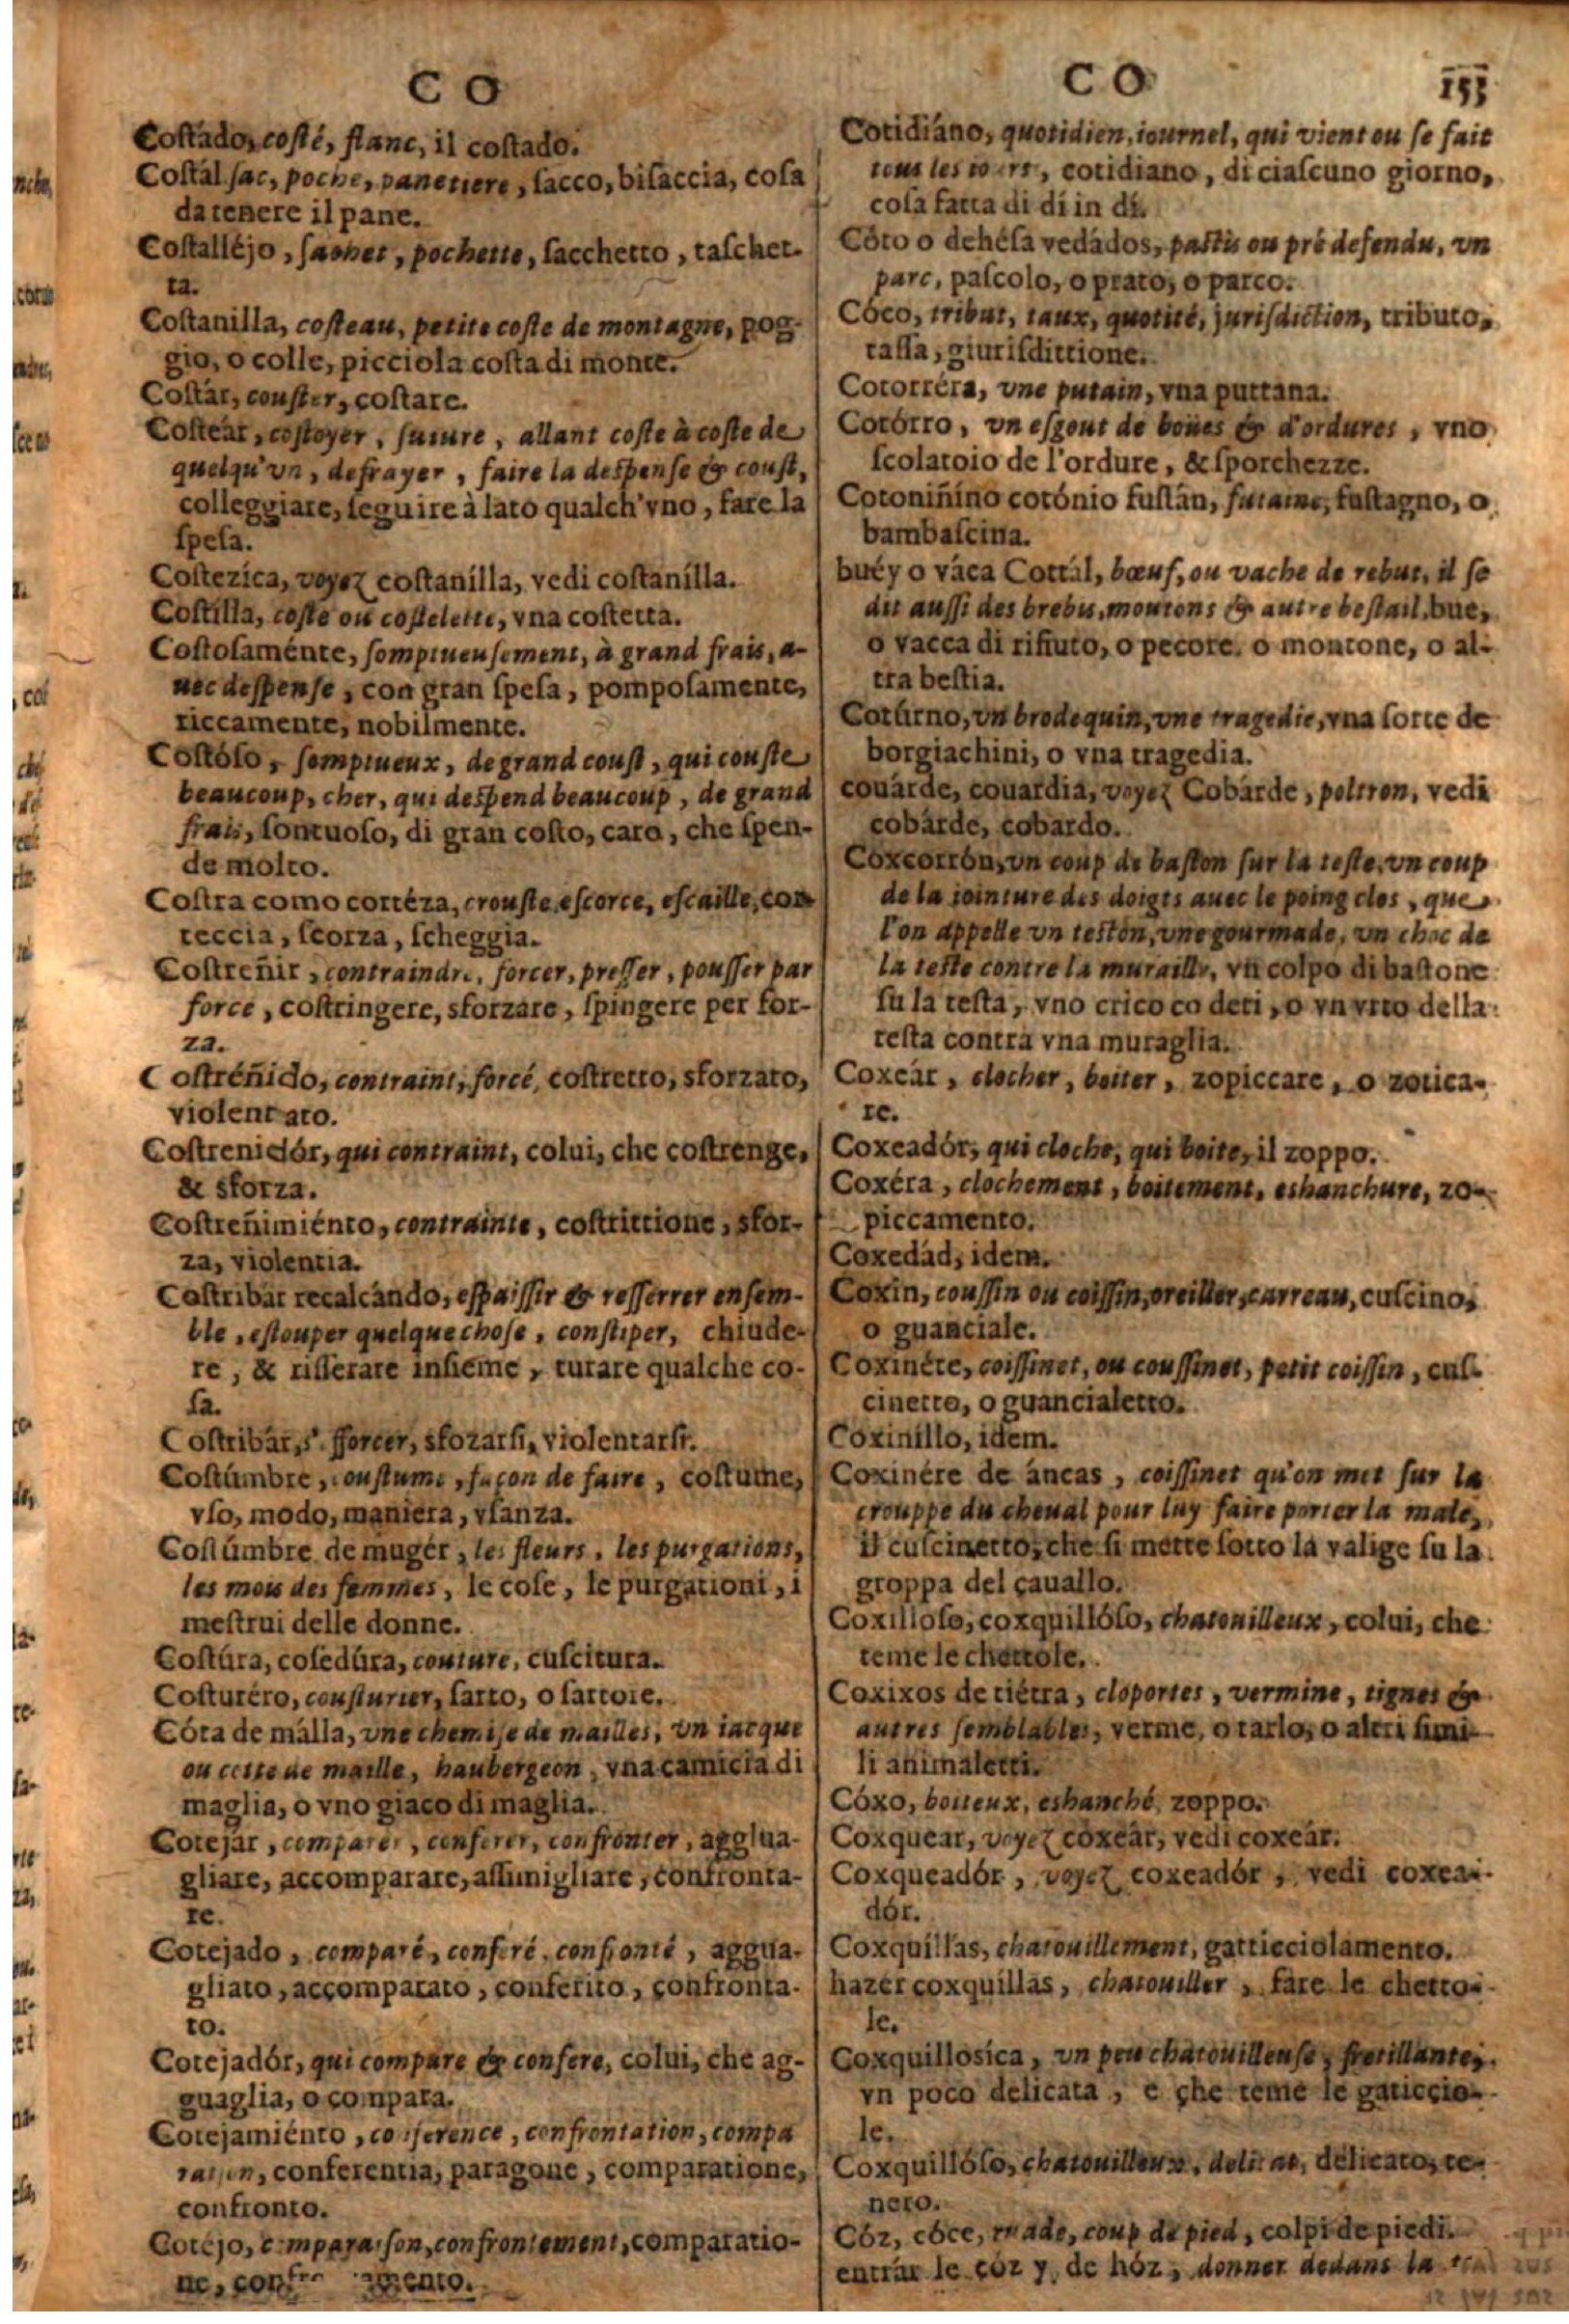 C O
Costádo, costé, flanc, il costado.
Costál sac, poche, panetiere, sacco, bisaccia, cosa
da tenere il pane.
Costalléjo, sachet, pochette, sacchetto, taschet-
ta.
Costanilla, costeau, petite coste de montagne, pog-
gio, o colle, picciola costa di monte.
Costár, couster, costare.
Costeár, costoyer, suiure, allant coste à coste de
quelqu'vn, defrayer, faire la despense & coust,
colleggiare, seguire à lato qualch'vno, fare la
spesa.
Costezíca, voyez costanílla, vedi costanílla.
Costílla, coste ou costelette, vna costetta.
Costosaménte, somptueusement, à grand frais, a-
uec despense, con gran spesa, pomposamente,
riccamente, nobilmente.
Costóso, somptueux, de grand coust, qui couste
beaucoup, cher, qui despend beaucoup, de grand
frais, sontuoso, di gran costo, caro, che spen-
de molto.
Costra como cortéza, crouste, escorce, escaille, cor-
teccia, scorza, scheggia.
Costreñir, contraindre, forcer, presser, pousser par
force, costringere, sforzare, spingere per for-
za.
Costréñido, contraint, forcé, costretto, sforzato,
violentato.
Costrenidór, qui contraint, colui, che costrenge,
& sforza.
Costreñimiénto, contrainte, costrittione, sfor-
za, violentia.
Costribár recalcándo, espaissir & resserrer ensem-
ble, estouper quelque chose, constiper, chiude-
re, & risserare insieme, turare qualche co-
sa.
Costribár, s'efforcer, sfozarsi, violentarsi.
Costúmbre, coustume, façon de faire, costume,
vso, modo, maniera, vsanza.
Costúmbre de mugér, les fleurs, les purgations,
les mois des femmes, le cose, le purgationi, i
mestrui delle donne.
Costúra, cosedúra, couture, cuscitura.
Costuréro, cousturier, sarto, o sartore.
Cóta de málla, vne chemise de mailles, vn iacque
ou cotte de maille, haubergeon, vna camicia di
maglia, o vno giaco di maglia.
Cotejár, comparer, conferer, confronter, aggua-
gliare, accomparare, assimigliare, confronta-
re.
Cotejado, comparé, conferé, confronté, aggua-
gliato, accomparato, conferito, confronta-
to.
Cotejadór, qui compare & confere, colui, che ag-
guaglia, o compara.
Cotejamiénto, conference, confrontation, compa
raison, conferentia, paragone, comparatione,
confronto.
Cotéjo, comparaison, confrontement, comparatio-
ne,
C O 153
Cotidiáno, quotidien, iournel, qui vient ou se fait
tous les iours, cotidiano, di ciascuno giorno,
cosa fatta di dí in dí.
Cóto o dehésa vedádos, pastis ou pré defendu, vn
parc, pascolo, o prato, o parco.
Cóco, tribut, taux, quotité, jurisdiction, tributo,
tassa, giurisdittione.
Cotorréra, vne putain, vna puttana.
Cotórro, vn esgout de boües & d'ordures, vno
scolatoio de l'ordure, & sporchezze.
Cotoniñíno cotónio fustán, futaine, fustagno, o
bambascina.
buéy o váca Cottál, bœuf, ou vache de rebut, il se
dit aussi des brebis, moutons & autre bestail, bue,
o vacca di rifiuto, o pecore, o montone, o al-
tra bestia.
Cotúrno, vn brodequin, vne tragedie, vna sorte de
borgiachini, o vna tragedia.
couárde, couardia, voyez Cobárde, poltron, vedi
cobárde, cobardo.
Coxcorrón, vn coup de baston sur la teste, vn coup
de la iointure des doigts auec le poing clos, que
l'on appelle vn testón, vne gourmade, vn choc de
la teste contre la muraille, vn colpo di bastone
su la testa, vno crico co deti, o vn vrto della
testa contra vna muraglia.
Coxeár, clocher, boiter, zopiccare, o zotica-
re.
Coxeadór, qui cloche, qui boite, il zoppo.
Coxéra, clochement, boitement, eshanchure, zo-
piccamento.
Coxedád, idem.
Coxin, coussin ou coissin, oreiller, carreau, cuscino,
o guanciale.
Coxinéte, coissinet, ou coussinet, petit coissin, cus-
cinetto, o guancialetto.
Coxinillo, idem.
Coxinére de áncas, coissinet qu'on met sur la
crouppe du cheual pour luy faire porter la male,
il cuscinetto, che si mette sotto la valige su la
groppa del cauallo.
Coxilloso, coxquillóso, chatouilleux, colui, che
teme le chettole.
Coxixos de tiérra, cloportes, vermine, tignes &
autres semblables, verme, o tarlo, o altri simi-
li animaletti.
Cóxo, boiteux, eshanché, zoppo.
Coxquear, voyez coxeár, vedi coxeár.
Coxqueadór, voyez coxeadór, vedi coxea-
dór.
Coxquíllas, chatouillement, gatticciolamento.
hazér coxquíllas, chatouiller, fare le chetto-
le.
Coxquillosíca, vn peu chatouilleuse, fretillante,
vn poco delicata, e che teme le gaticcio-
le.
Coxquillóso, chatouilleux, delicat, delicato, te-
nero.
Cóz, cóce, ruade, coup de pied, colpi de piedi.
entrár le cóz y de hóz, donner dedans la